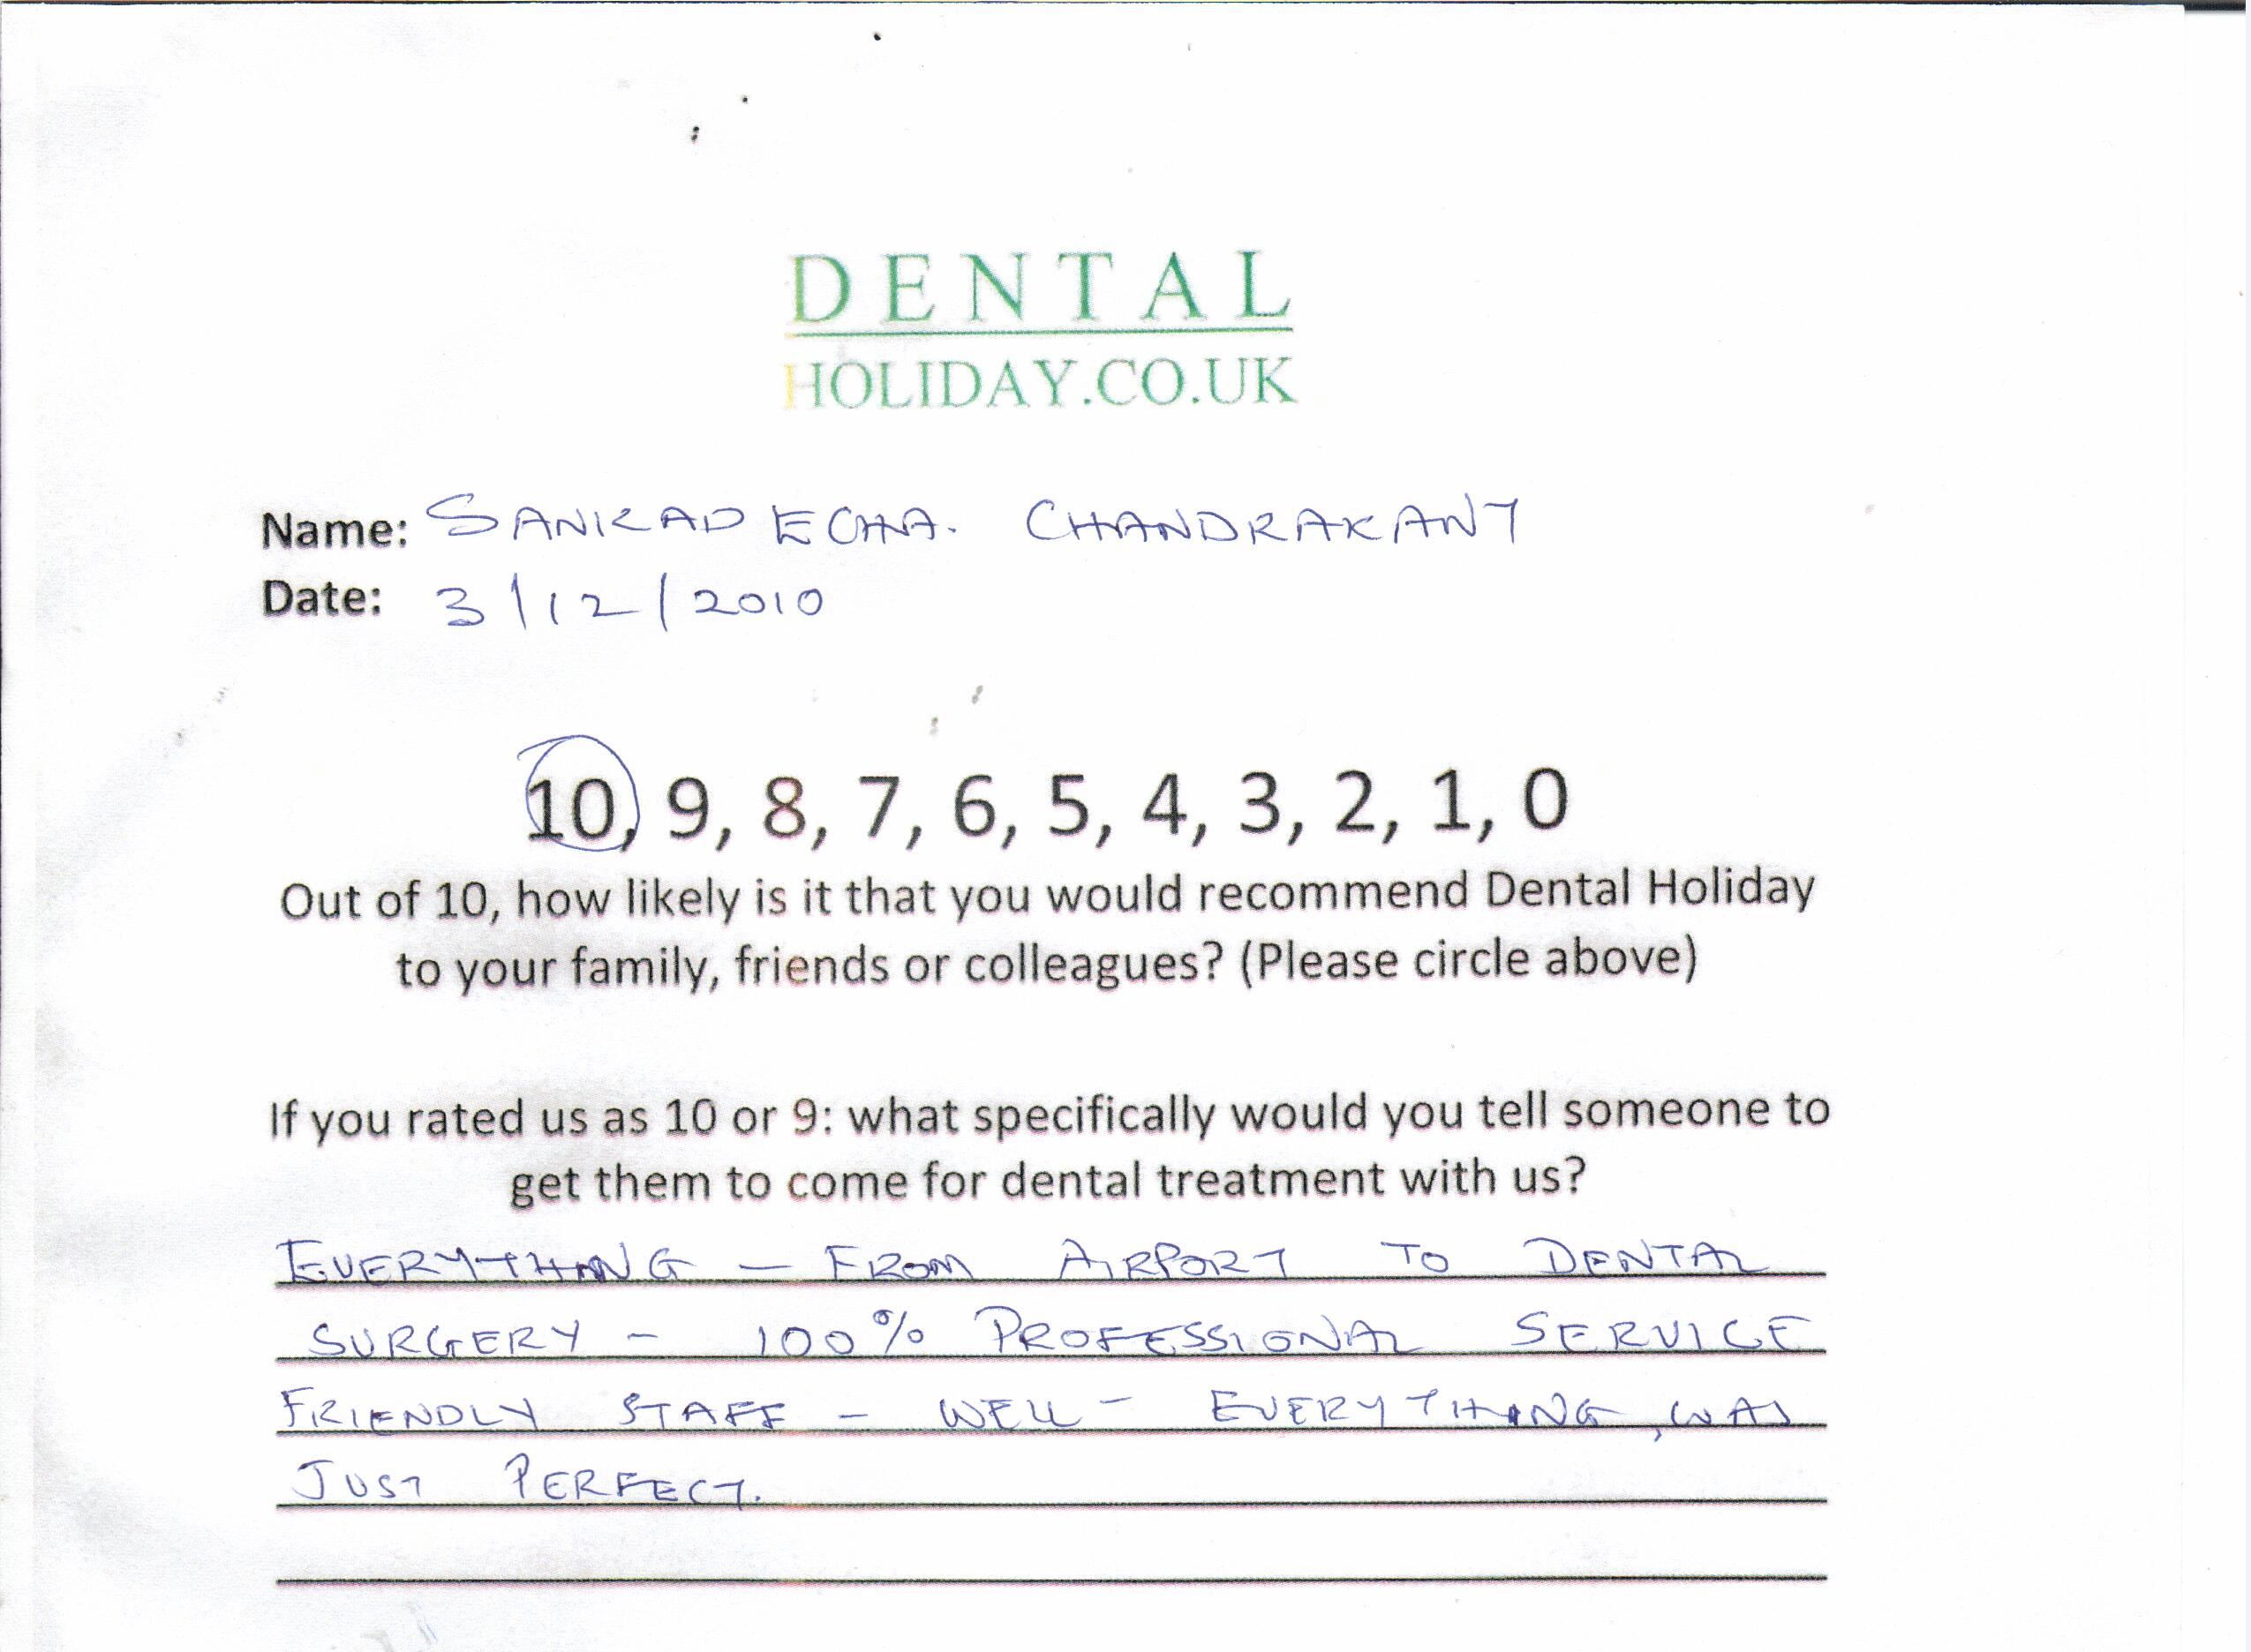 DENTAL
HOLIDAY.CO.UK
Name: SANKADECHA. CHANDRAKANT
Date: 3/12/2010
10, 9, 8, 7, 6, 5, 4, 3, 2, 1, 0
Out of 10, how likely is it that you would recommend Dental Holiday
to your family, friends or colleagues? (Please circle above)
If you rated us as 10 or 9: what specifically would you tell someone to
get them to come for dental treatment with us?
EVERYTHING – FROM AIRPORT TO DENTAL
SURGERY – 100% PROFESSIONAL SERVICE
FRIENDLY STAFF – WELL – EVERYTHING, WAS
JUST PERFECT.